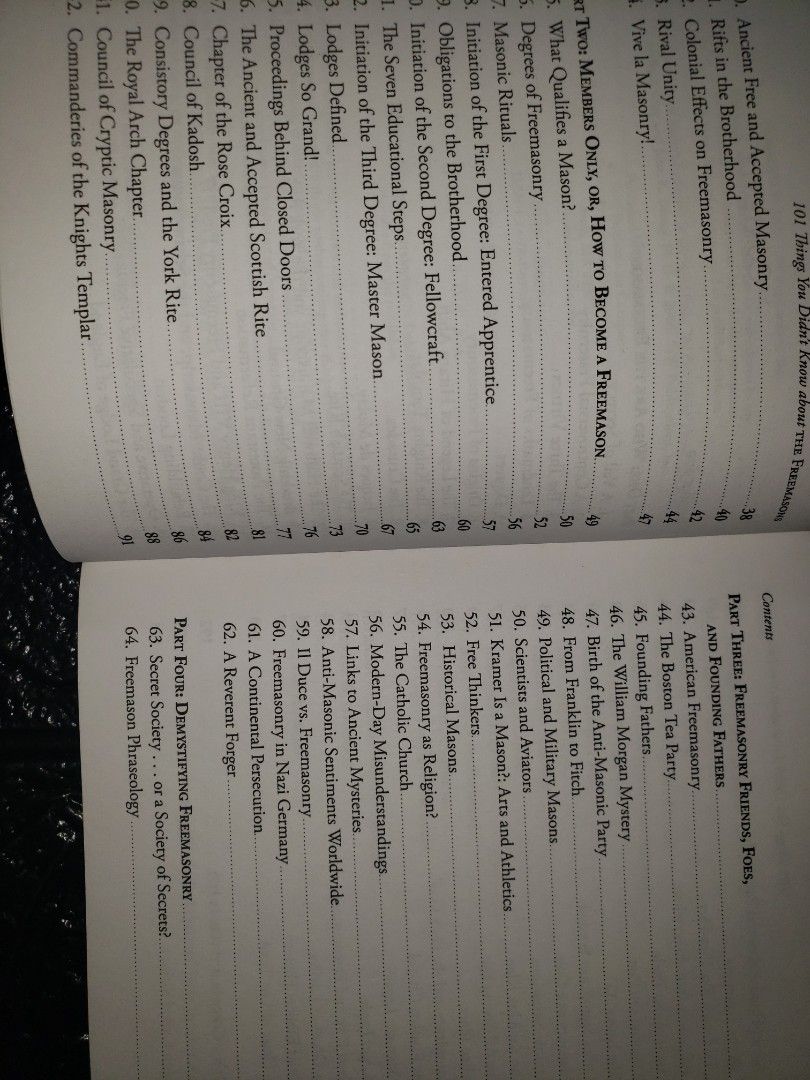 101 Things You Didn't Know about THE FREEMASONS
0. Ancient Free and Accepted Masonry 38
1. Rifts in the Brotherhood 40
2. Colonial Effects on Freemasonry 42
3. Rival Unity 44
4. Vive la Masonry! 47
RT TWO: MEMBERS ONLY, OR, HOW TO BECOME A FREEMASON 49
5. What Qualifies a Mason? 50
6. Degrees of Freemasonry 52
7. Masonic Rituals 56
8. Initiation of the First Degree: Entered Apprentice 57
9. Obligations to the Brotherhood 60
0. Initiation of the Second Degree: Fellowcraft 63
1. The Seven Educational Steps 65
2. Initiation of the Third Degree: Master Mason 67
3. Lodges Defined 70
4. Lodges So Grand! 73
5. Proceedings Behind Closed Doors 76
6. The Ancient and Accepted Scottish Rite 77
7. Chapter of the Rose Croix 81
8. Council of Kadosh 82
9. Consistory Degrees and the York Rite 84
0. The Royal Arch Chapter 86
1. Council of Cryptic Masonry 88
2. Commanderies of the Knights Templar 91
Contents
PART THREE: FREEMASONRY FRIENDS, FOES,
AND FOUNDING FATHERS
43. American Freemasonry
44. The Boston Tea Party
45. Founding Fathers
46. The William Morgan Mystery
47. Birth of the Anti-Masonic Party
48. From Franklin to Fitch
49. Political and Military Masons
50. Scientists and Aviators
51. Kramer Is a Mason?: Arts and Athletics
52. Free Thinkers
53. Historical Masons
54. Freemasonry as Religion?
55. The Catholic Church
56. Modern-Day Misunderstandings
57. Links to Ancient Mysteries
58. Anti-Masonic Sentiments Worldwide
59. Il Duce vs. Freemasonry
60. Freemasonry in Nazi Germany
61. A Continental Persecution
62. A Reverent Forger
PART FOUR: DEMYSTIFYING FREEMASONRY
63. Secret Society . . . or a Society of Secrets?
64. Freemason Phraseology